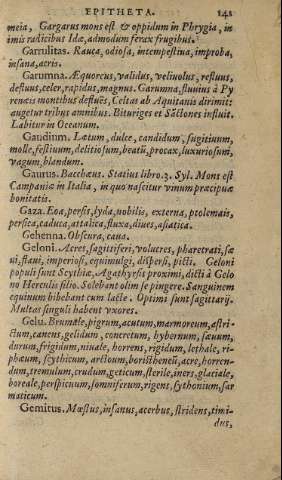 EPITHETA. 242
meia, Gargarus mons est & oppidum in Phrygia, in
imis radicibus Idæ, admodum ferax frugibus.
Garrulitas. Rauca, odiosa, intempestiua, improba,
insana, acris.
Garumna. Æquoreus, validus, veliuolus, refluus,
defluus, celer, rapidus, magnus. Garumna, fluuius à Py
reneis montibus defluēs, Celtas ab Aquitanis dirimit:
augetur tribus amnibus. Bituriges et Sāctones influit.
Labitur in Oceanum.
Gaudium. Lætum, dulce, candidum, fugitiuum,
molle, festiuum, delitiosum, beatū, procax, luxuriosum,
vagum, blandum.
Gaurus. Bacchæus. Statius libro.3. Syl. Mons est
Campaniæ in Italia, in quo nascitur vinum præcipuæ
bonitatis.
Gaza. Eoa, persis, lyda, nobilis, externa, ptolemais,
persica, caduca, attalica, fluxa, diues, asiatica.
Gehenna. Obscura, caua.
Geloni. Acres, sagittiferi, volucres, pharetrati, sæ
ui, flaui, imperiosi, equimulgi, dispersi, picti. Geloni
populi sunt Scythiæ, Agathyrsis proximi, dicti à Gelo
no Herculis filio. Solebant olim se pingere. Sanguinem
equinum bibebant cum lacte. Optimi sunt sagittarij.
Multas singuli habent vxores.
Gelu. Brumale, pigrum, acutum, marmoreum, astri-
ctum, canens, gelidum, concretum, hybernum, sæuum,
durum, frigidum, niuale, horrens, rigidum, lethale, ri-
phæum, scythicum, arctoum, boristheneū, acre, horren-
dum, tremulum, crudum, geticum, sterile, iners, glaciale,
boreale, perspicuum, somniferum, rigens, sythonium, sar
maticum.
Gemitus. Mœstus, insanus, acerbus, stridens, timi-
dus,